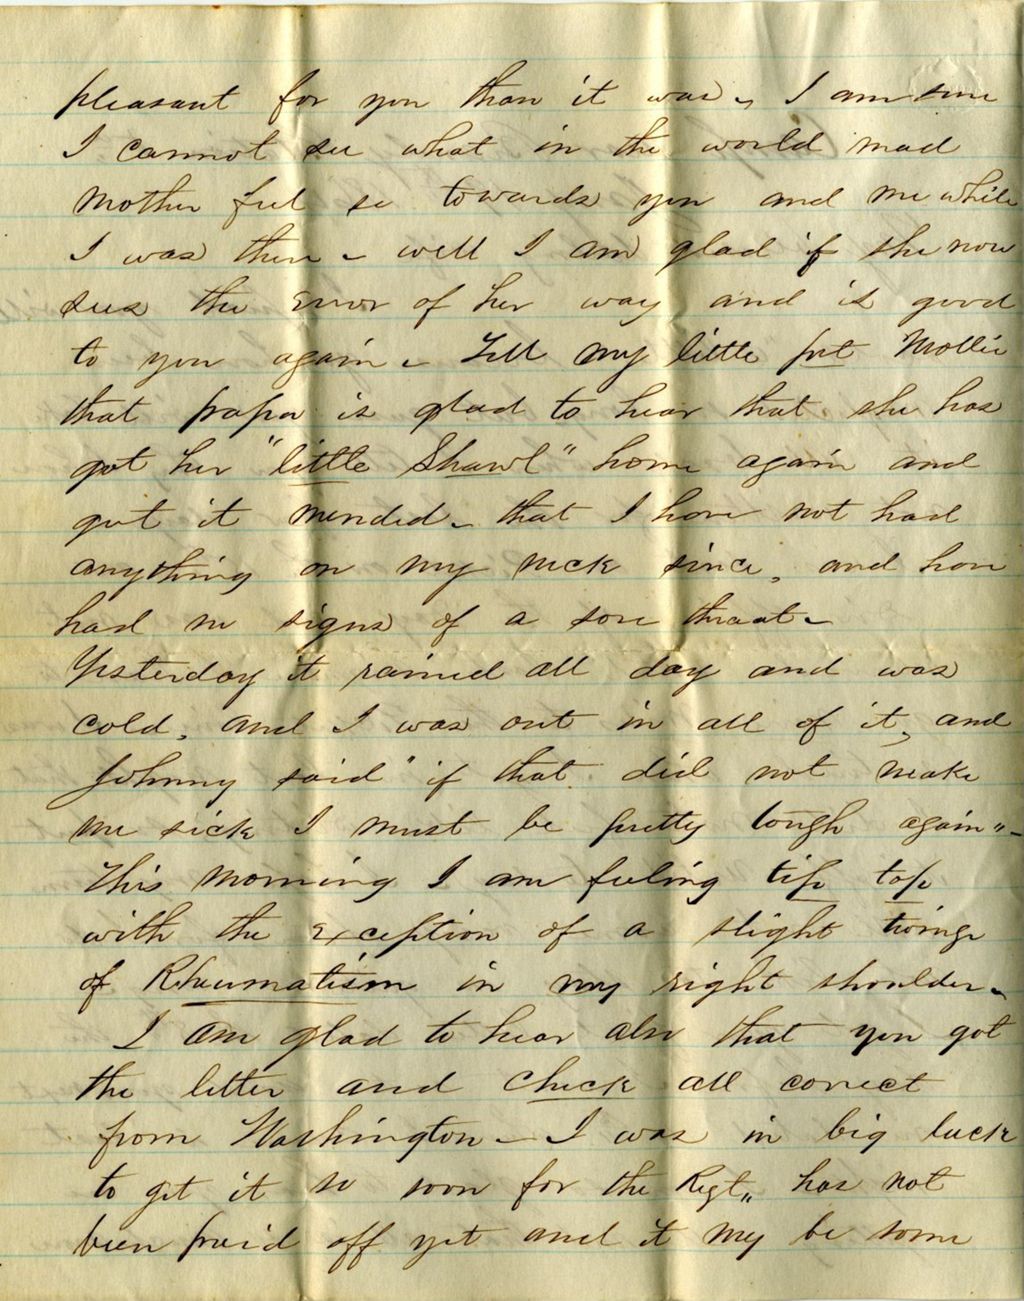 pleasant for you than it was – I am sure
I cannot see what in the world mad
Mother feel so towards you and me while
I was there – well I am glad if she now
sees the Error of her way and is good
to you again – Tell my little pet Mollie
that papa is glad to hear that she has
got her "little Shawl" home again and
got it mended – that I have not had
anything on my neck since, and have
had no signs of a sore throat –
Yesterday it rained all day and was
cold, and I was out in all of it, and
Johnny said "if that did not make
me sick I must be pretty tough again" –
This morning I am feeling tip top
with the Exception of a slight twinge
of Rheumatism in my right shoulder –
I am glad to hear also that you got
the letter and Check all correct
from Washington – I was in big luck
to get it so soon for the Regt,, has not
been paid off yet and it my be some